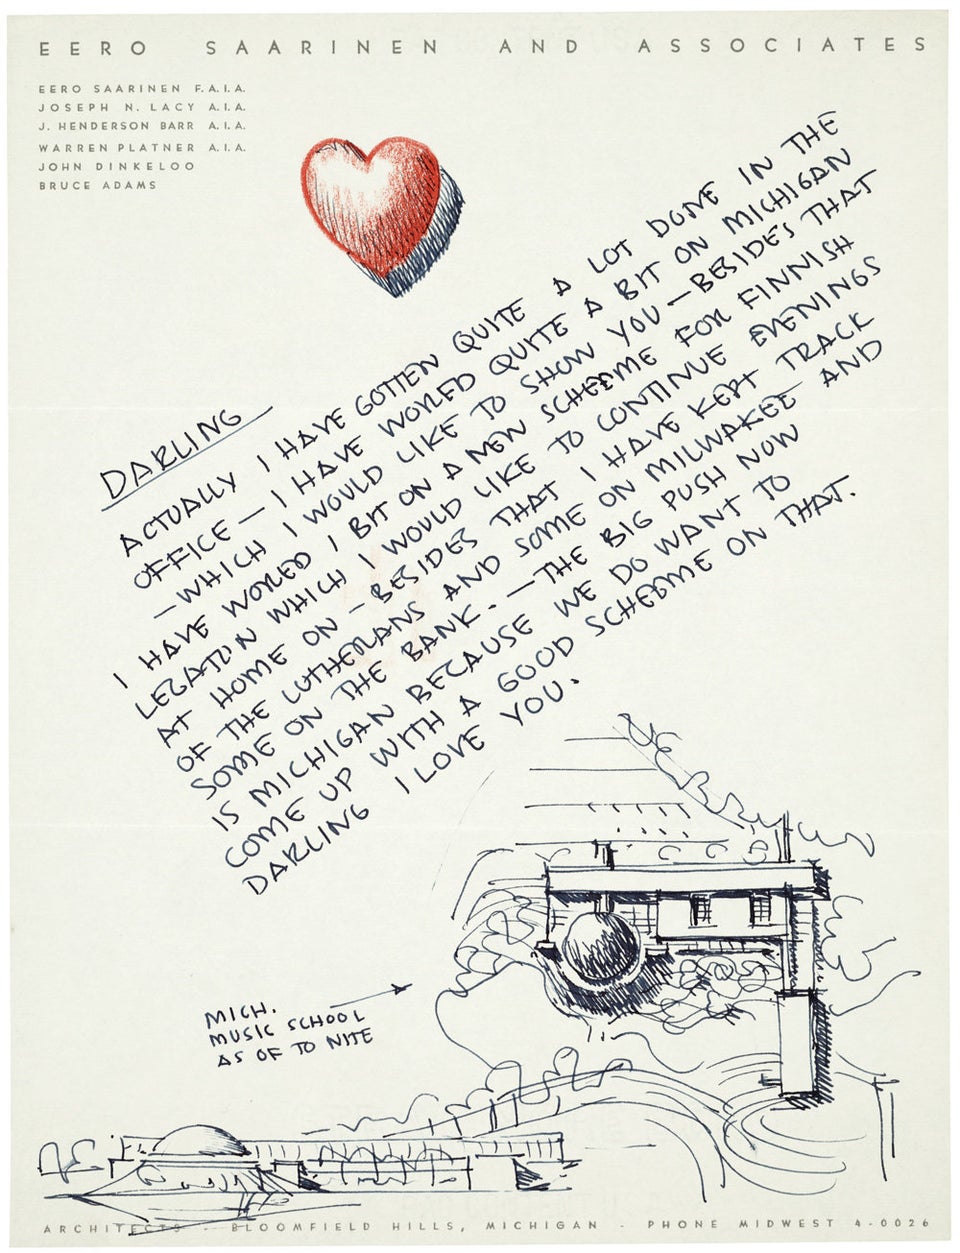 EERO SAARINEN AND ASSOCIATES
EERO SAARINEN F.A.I.A.
JOSEPH N. LACY A.I.A.
J. HENDERSON BARR A.I.A.
WARREN PLATNER A.I.A.
JOHN DINKELOO
BRUCE ADAMS
DARLING —
ACTUALLY I HAVE GOTTEN QUITE A LOT DONE IN THE
OFFICE — I HAVE WORLED QUITE A BIT ON MICHIGAN
— WHICH I WOULD LIKE TO SHOW YOU — BESIDES THAT
I HAVE WORLED I BIT ON A NEW SCHEEME FOR FINNISH
LEGATION WHICH I WOULD LIKE TO CONTINUE EVENINGS
AT HOME ON — BESIDES THAT I HAVE KEPT TRACK
OF THE LUTHERANS AND SOME ON MILWAKEE AND
SOME ON THE BANK. — THE BIG PUSH NOW
IS MICHIGAN BECAUSE WE DO WANT TO
COME UP WITH A GOOD SCHEEME ON THAT.
DARLING I LOVE YOU.
MICH.
MUSIC SCHOOL
AS OF TO NITE
ARCHITECTS - BLOOMFIELD HILLS, MICHIGAN - PHONE MIDWEST 4-0026